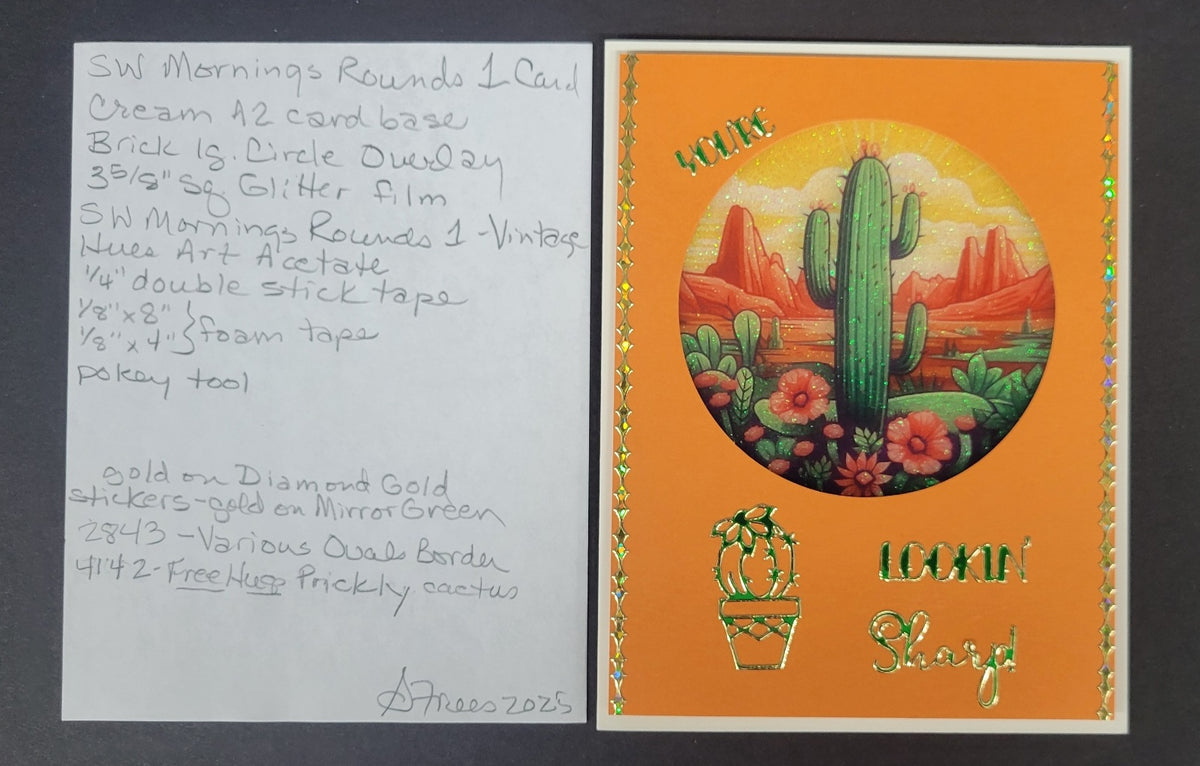 SW Mornings Rounds 1 Card
Cream A2 card base
Brick lg. Circle Overlay
3 5/8" Sq Glitter film
SW Mornings Rounds 1 - Vintage
Hues Art Acetate
1/4" double stick tape
1/8" x 8"
1/8" x 4" } foam tape
pokey tool
gold on Diamond Gold
stickers - gold on Mirror Green
2843 - Various Oval Border
4142 - Free Hugs Prickly cactus
SFrees 2025
YOU'RE
LOOKIN'
Sharp!